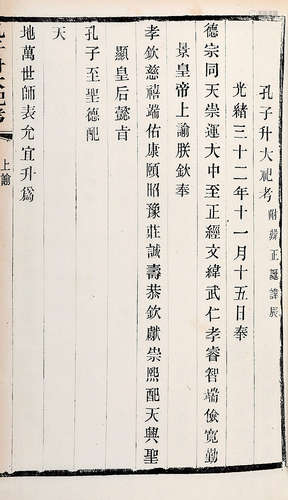 孔子升大祀考附辯正誕諱辰
光緒三十二年十一月十五日奉
德宗同天崇運大中至正經文緯武仁孝睿智端儉寬勤
景皇帝上諭朕欽奉
孝欽慈禧端佑康頤昭豫莊誠壽恭欽獻崇熙配天興聖
顯皇后懿旨
孔子至聖德配
天
地萬世師表允宜升為
上諭